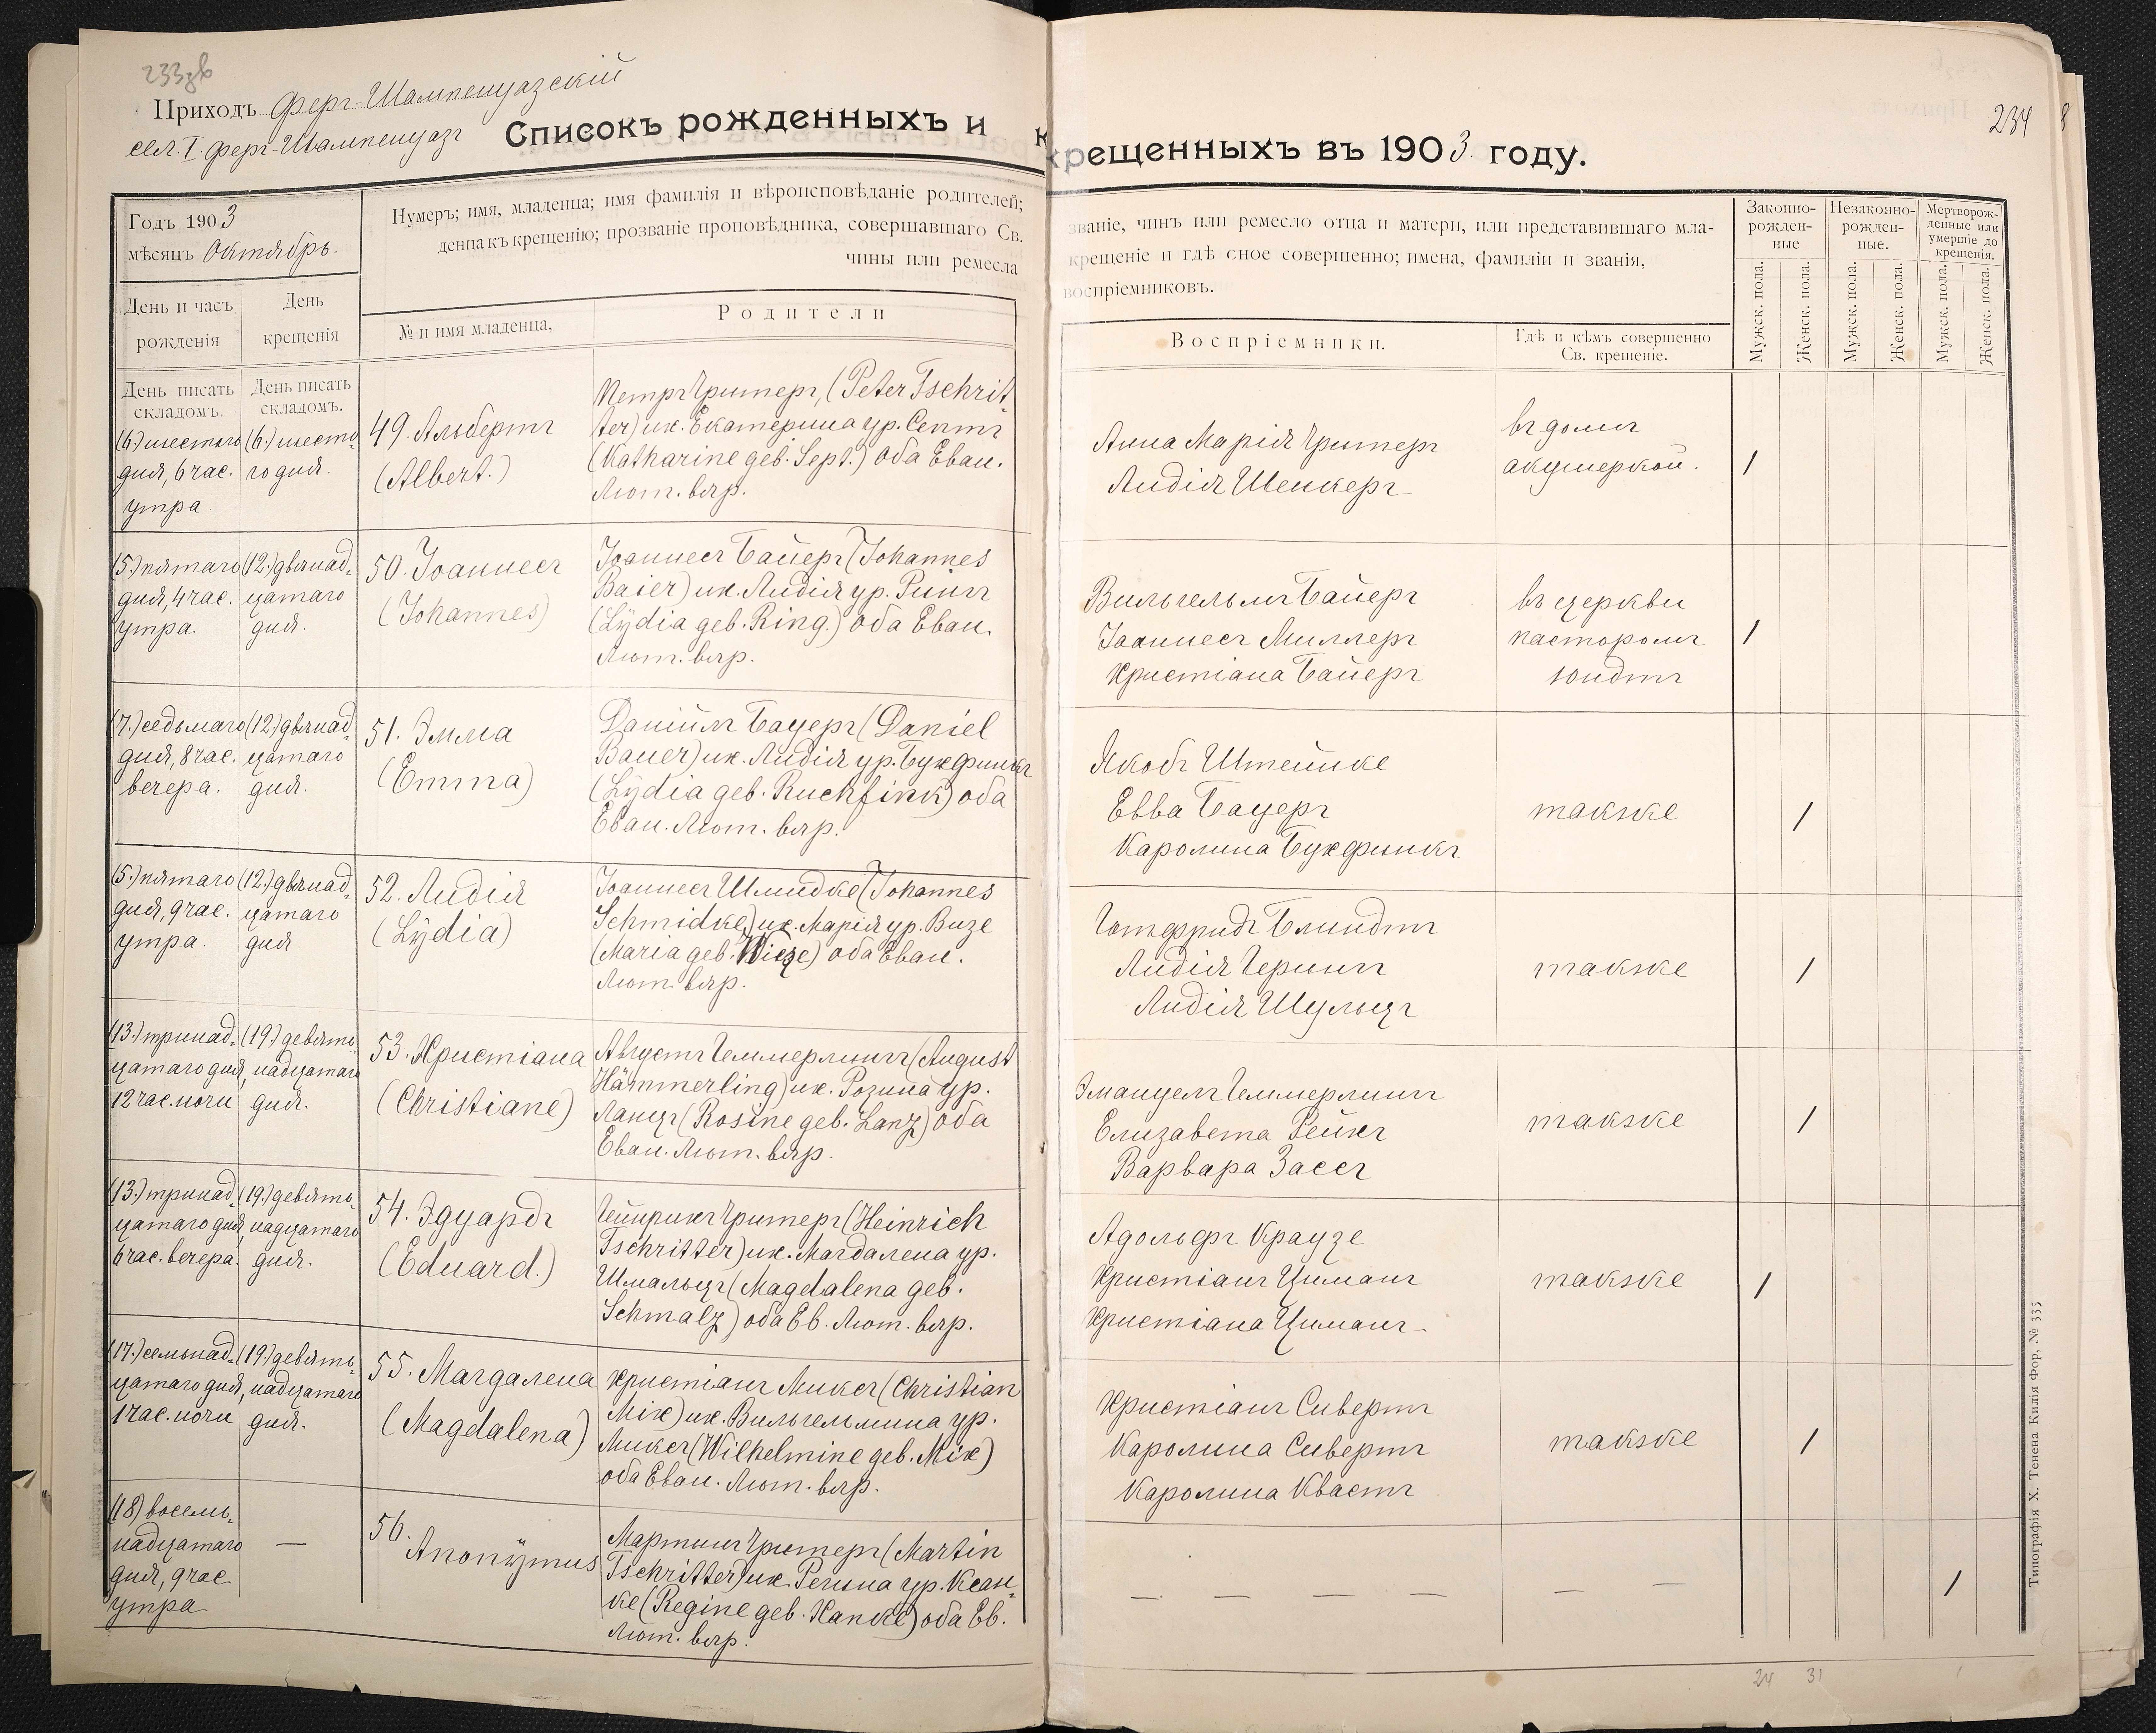 233зв
Приходъ Феръ-Шампенуазскій
сел. I. Феръ-Шампенуазъ
Списокъ рожденныхъ и
Годъ 1903
мѣсяцъ Октябрь.
Нумеръ; имя, младенца; имя фамилія и вѣроисповѣданіе родителей;
денца къ крещенію; прозваніе проповѣдника, совершавшаго Св.
чины или ремесла
День и часъ рожденія
День крещенія
№ и имя младенца,
Родители
День писать складомъ.
День писать складомъ.
(6.) шестого
дня, 6 час.
утра
(6.) шесто-
го дня.
49. Альбертъ
(Albert.)
Петръ Чритеръ, (Peter Tschrit-
ter) и ж. Екатерина ур. Септъ
(Katharine geb. Sept.) оба Еван.
Лют. вѣр.
(5.) пятаго
дня, 4 час.
утра.
(12.) двѣнад-
цатаго
дня.
50. Іоаннесъ
(Johannes)
Іоаннесъ Байеръ (Johannes
Baier) и ж. Лидія ур. Рингъ
(Lÿdia geb. Ring.) оба Еван.
Лют. вѣр.
(7.) седьмаго
дня, 8 час.
вечера.
(12.) двѣнад-
цатаго
дня.
51. Эмма
(Emma)
Даніилъ Бауеръ (Daniel
Bauer) и ж. Лидія ур. Бухфинкъ
(Lÿdia geb. Buchfink) оба
Еван. Лют. вѣр.
(5.) пятаго
дня, 9 час.
утра.
(12.) двѣнад-
цатаго
дня.
52. Лидія
(Lÿdia)
Іоаннесъ Шмидке (Johannes
Schmidke) и ж. Марія ур. Визе
(Maria geb. Wieze) оба Еван.
Лют. вѣр.
(13.) тринад-
цатаго дня,
12 час. ночи
(19.) девят-
надцатаго
дня.
53. Христіана
(Christiane)
Августъ Геммерлингъ (August
Hämmerling) и ж. Розина ур.
Ланцъ (Rosine geb. Lanz) оба
Еван. Лют. вѣр.
(13.) тринад-
цатаго дня,
6 час. вечера.
(19.) девят-
надцатаго
дня.
54. Эдуардъ
(Eduard.)
Гейнрихъ Чритеръ (Heinrich
Tschritter) и ж. Магдалена ур.
Шмальцъ (Magdalena geb.
Schmalz) оба Ев. Лют. вѣр.
(17.) семьнад-
цатаго дня,
1 час. ночи
(19.) девять-
надцатаго
дня.
55. Магдалена
(Magdalena)
Христіанъ Миксъ (Christian
Mix) и ж. Вильгельмина ур.
Миксъ (Wilhelmine geb. Mix)
оба Еван. Лют. вѣр.
(18) восемь-
надцатаго
дня, 9 час
утра
—
56.
Anonÿmus
Мартинъ Чритеръ (Martin
Tschritter) и ж. Регина ур. Ксан-
ке (Regine geb. Xanke) оба Ев.
Лют. вѣр.
234
8
крещенныхъ въ 1903. году.
званіе, чинъ или ремесло отца и матери, или представившаго мла-
крещеніе и гдѣ оное совершенно; имена, фамиліи и званія,
воспріемниковъ.
Воспріемники.
Гдѣ и кѣмъ совершенно
Св. крещеніе.
Законно-рожден-ные
Незаконно-рожден-ные.
Мертворож-денные или умершіе до крещенія.
Мужск. пола.
Женск. пола.
Мужск. пола.
Женск. пола.
Мужск. пола.
Женск. пола.
Анна Марія Чритеръ
Лидія Шенкеръ
въ домѣ
акушеркой.
/
Вильгельмъ Байеръ
Іоаннесъ Миллеръ
Христіана Байеръ
въ церкви
пасторомъ
Юндтъ
/
Якобъ Штейнке
Евва Бауеръ
Каролина Бухфинкъ
также
/
Готфридъ Блиндтъ
Лидія Герингъ
Лидія Шульцъ
также
/
Эмануелъ Геммерлингъ
Елизавета Рейхъ
Варвара Зассъ
также
/
Адольфъ Краузе
Христіанъ Циманъ
Христіана Циманъ
также
/
Христіанъ Сивертъ
Каролина Сивертъ
Каролина Квастъ
также
/
— — — — — —
/
24 31 1
Типографія Х. Тенена Килія Фор. № 335